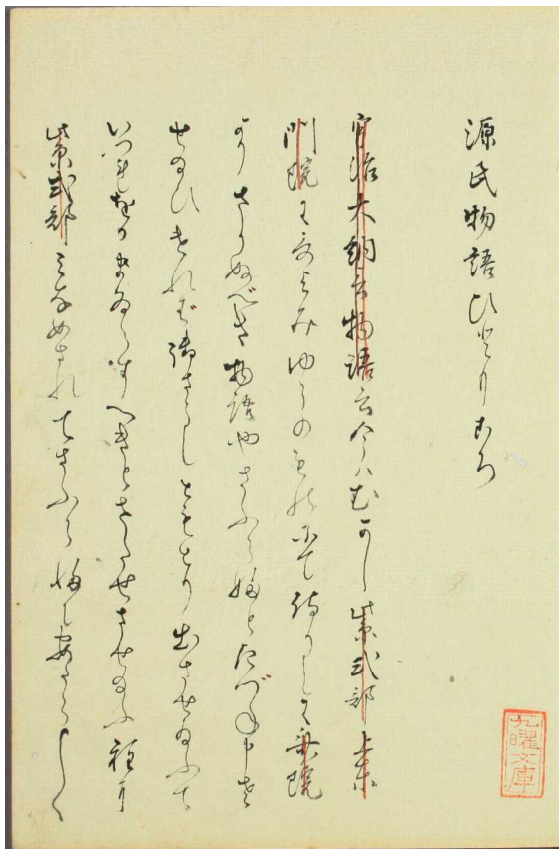 源氏物語ひとりごち
宇治大納言物語云今ハむかし紫式部上東
門院に歌よみゆうのものにて侍りしに斎院
よりさりぬべき物語やさふらふとたづね申さ
せ給ひければ御さうしともとり出させ給ふて
いつれをかまゐらすへきとさたせさせ給ふ程に
紫式部みなめなれてさふらふにあたらしく
九曜文庫